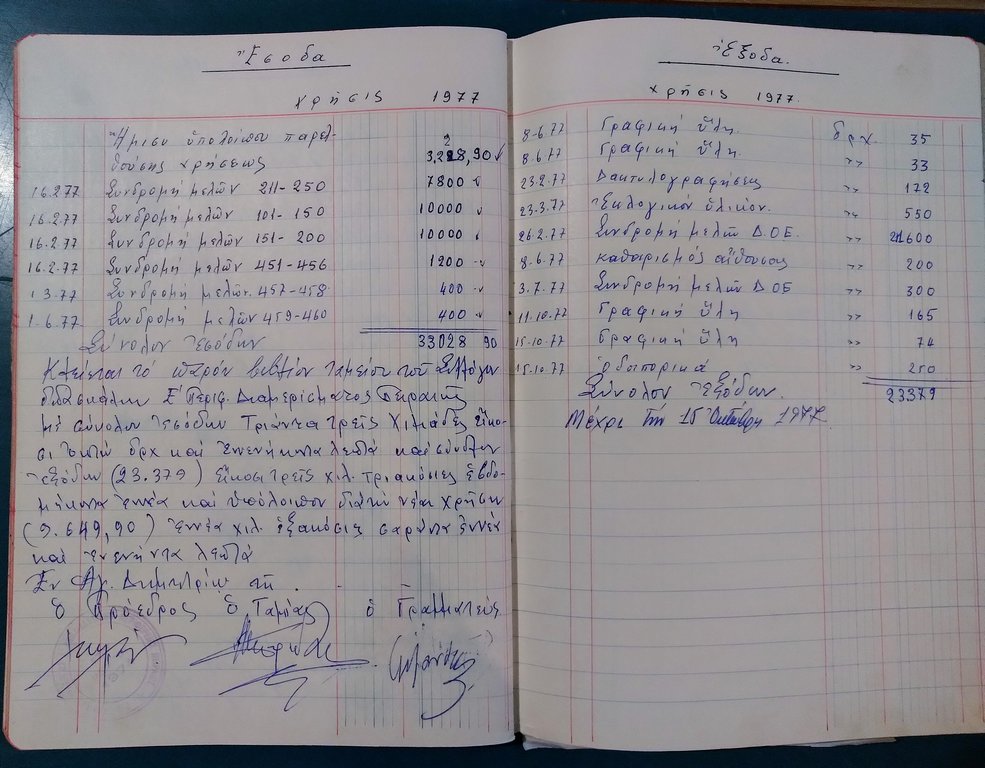 Ἔσοδα
χρῆσις 1977
Ἥμισυ ὑπολοίπου παρελ-
θούσης χρήσεως 3,228,90
16.2.77 Συνδρομή μελῶν 211-250 7800
16.2.77 Συνδρομή μελῶν 101-150 10000
16.2.77 Συνδρομή μελῶν 151-200 10000
16.2.77 Συνδρομή μελῶν 451-456 1200
1 3.77 Συνδρομή μελῶν 457-458 400
1.6.77 Συνδρομή μελῶν 459-460 400
Σύνολον Ἐσόδων 33028 90
Κλείεται τό παρόν βιβλίον ταμείου τοῦ Συλλόγου
Διδασκάλων Σ' Περιφ. Διαμερίσματος Πειραιῶς
μέ σύνολον ἐσόδων Τριάντα τρεῖς Χιλιάδες εἴκο-
σι ὀκτώ δρχ καί ἐνενήκοντα λεπτά καί σύνολον
ἐξόδων (23.379) εἴκοσι τρεῖς χιλ. τριακόσιες ἑβδο-
μήκοντα ἐννέα καί ὑπόλοιπον διά τήν νέαν χρῆσιν
(9.649,90) ἐννέα χιλ. ἑξακόσιες σαράντα ἐννέα
καί ἐνενήντα λεπτά
Ἐν Αγ. Δημητρίῳ τῇ . .
ὁ Πρόεδρος ὁ Ταμίας ὁ Γραμματεύς
Ἔξοδα.
χρῆσις 1977.
8-6.77 Γραφική ὕλη. δρχ. 35
8.6.77 Γραφική ὕλη. >> 33
23.2.77 Δακτυλογραφήσεις >> 172
23.3.77 Ἐκλογικόν ὑλικόν. >> 550
26.2.77 Συνδρομή μελῶν Δ.Ο.Ε. >> 21600
8.6.77 καθαρισμός αἴθουσας >> 200
3.7.77 Συνδρομή μελῶν Δ ΟΕ >> 300
11.10.77 Γραφική ὕλη >> 165
15.10.77 Γραφική ὕλη >> 74
15.10.77 ὁδοιπορικά >> 250
Σύνολον Ἐξόδων. 23379
Μέχρι τήν 15 Ὀκτωβρη 1977.